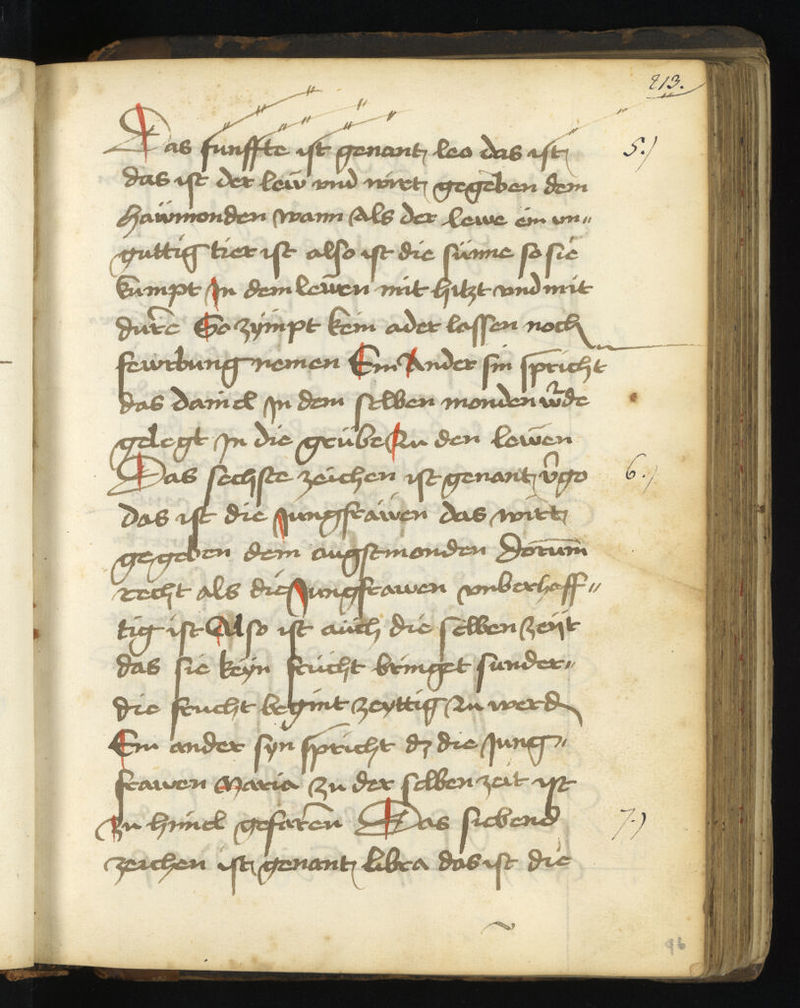 213.
Das funffte ist genant leo das ist 5.)
das ist der lew vnd wirt gegeben dem
hawmonden wann Als der lewe ein vn„
guttig tier ist also ist die sunne so sie
kumpt In dem lewen mit hitzt vnd mit
durre So zympt kein ader lassen noch
fewrbung nemen Ein Ander sin spricht
das daniel In dem selben monden wūde
gelegt In die grube Zu den lewen
Das sechste zeichen ist genant v̄go 6.)
das ist die Jungfrawen das wirt
gegeben dem augstmonden Dorum̄
recht als die Jungfrawen vnberhaff„
tig ist Also ist auch die selben zeyt
das sie keyn frucht bringet sunder„
die frucht begint zeyttig zu werdn
Ein ander syn spricht dz die Jung„
frawen Maria zu der selben zeit ist
zu himel gefaren Das siebend 7.)
zeichen ist genant libra das ist die
96